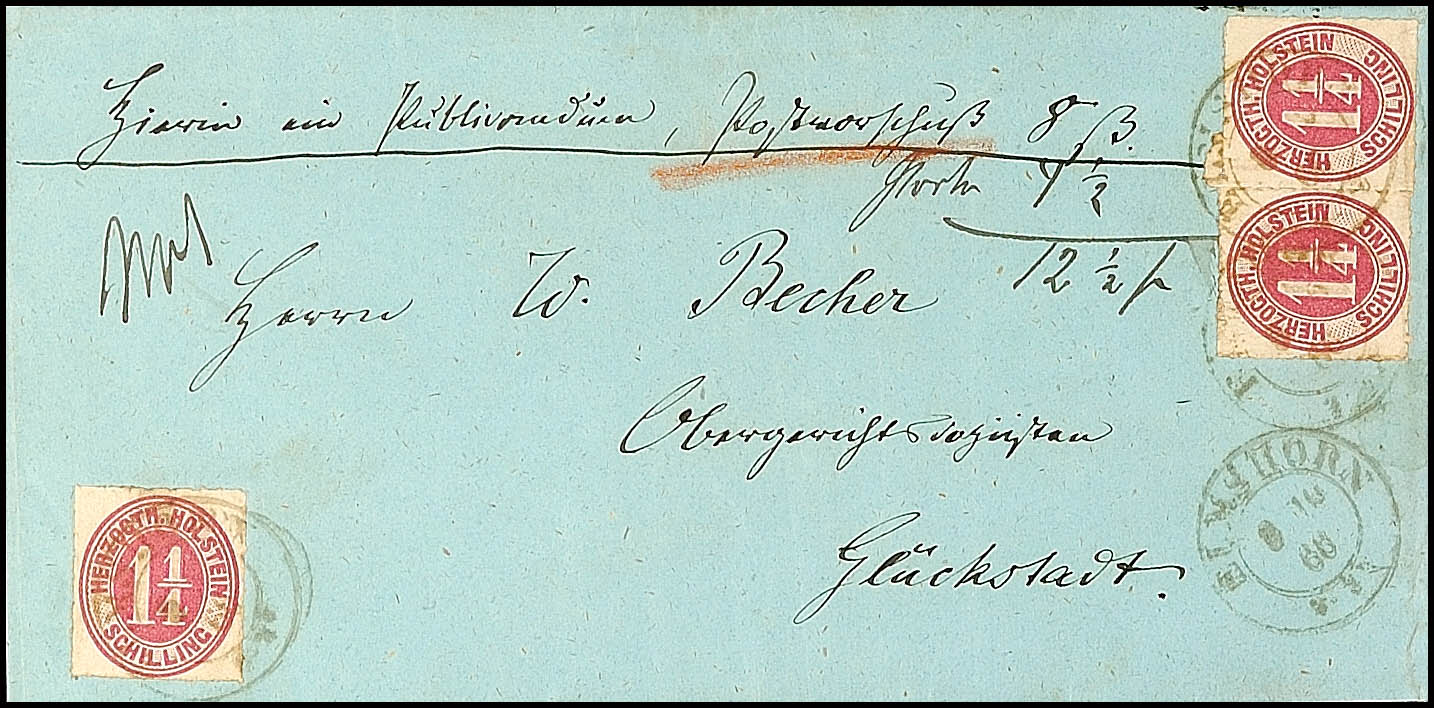 Hierin ein Publicandum, Postvorschuß 8 ß.
Porto 4 1/2
12 1/2 ß
Herrn W. Becher
Obergerichtscopiisten
Glückstadt.
HERZOGTH. HOLSTEIN
1 1/4
SCHILLING
HERZOGTH. HOLSTEIN
1 1/4
SCHILLING
HERZOGTH. HOLSTEIN
1 1/4
SCHILLING
ELMSHORN
66